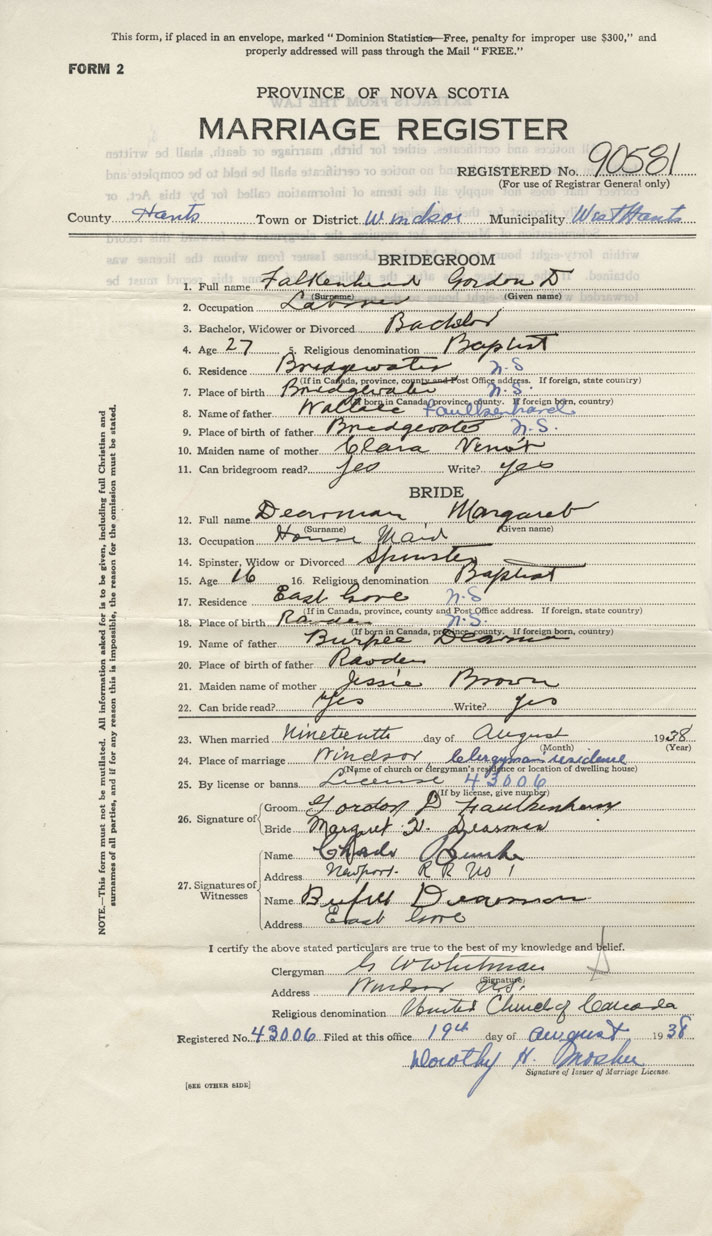 This form, if placed in an envelope, marked "Dominion Statistics—Free, penalty for improper use $300," and
properly addressed will pass through the Mail "FREE."
FORM 2
PROVINCE OF NOVA SCOTIA
MARRIAGE REGISTER
REGISTERED No. 90581
(For use of Registrar General only)
County Hants Town or District Windsor Municipality West Hants
BRIDEGROOM
1. Full name Falkenhead Gordon D
(Surname) (Given name)
2. Occupation Laborer
3. Bachelor, Widower or Divorced Bachelor
4. Age 27 5. Religious denomination Baptist
6. Residence Bridgewater N.S
(If in Canada, province, county and Post Office address. If foreign, state country)
7. Place of birth Bridgewater N.S.
(If born in Canada, province, county. If foreign born, country)
8. Name of father Wallace Faulkenhard
9. Place of birth of father Bridgewater N.S.
10. Maiden name of mother Clara Venot
11. Can bridegroom read? yes Write? yes
BRIDE
12. Full name Dearman Margaret
(Surname) (Given name)
13. Occupation House Maid
14. Spinster, Widow or Divorced Spinster
15. Age 16 16. Religious denomination Baptist
17. Residence East Gore N.S
(If in Canada, province, county and Post Office address. If foreign, state country)
18. Place of birth Rawdon N.S.
(If born in Canada, province, county. If foreign born, country)
19. Name of father Burpee Dearman
20. Place of birth of father Rawdon
21. Maiden name of mother Jessie Brown
22. Can bride read? Yes Write? yes
23. When married Nineteenth day of August 1938
(Month) (Year)
24. Place of marriage Windsor Clergyman residence
(Name of church or clergyman's residence or location of dwelling house)
25. By license or banns License 43006
(If by license, give number)
26. Signature of Groom Gordon D Faulkenham
Bride Margret H. Dearman
27. Signatures of Witnesses
Name
Address Newport R R No 1
Name Dearman
Address East Gore
I certify the above stated particulars are true to the best of my knowledge and belief.
Clergyman G W Whitman
(Signature)
Address Windsor N.S.
Religious denomination United Church of Canada
Registered No. 43006 Filed at this office 19th day of august 1938
Dorothy H. Mosher
Signature of Issuer of Marriage License.
[SEE OTHER SIDE]
NOTE.—This form must not be mutilated. All information asked for is to be given, including full Christian and
surnames of all parties, and if for any reason this is impossible, the reason for the omission must be stated.